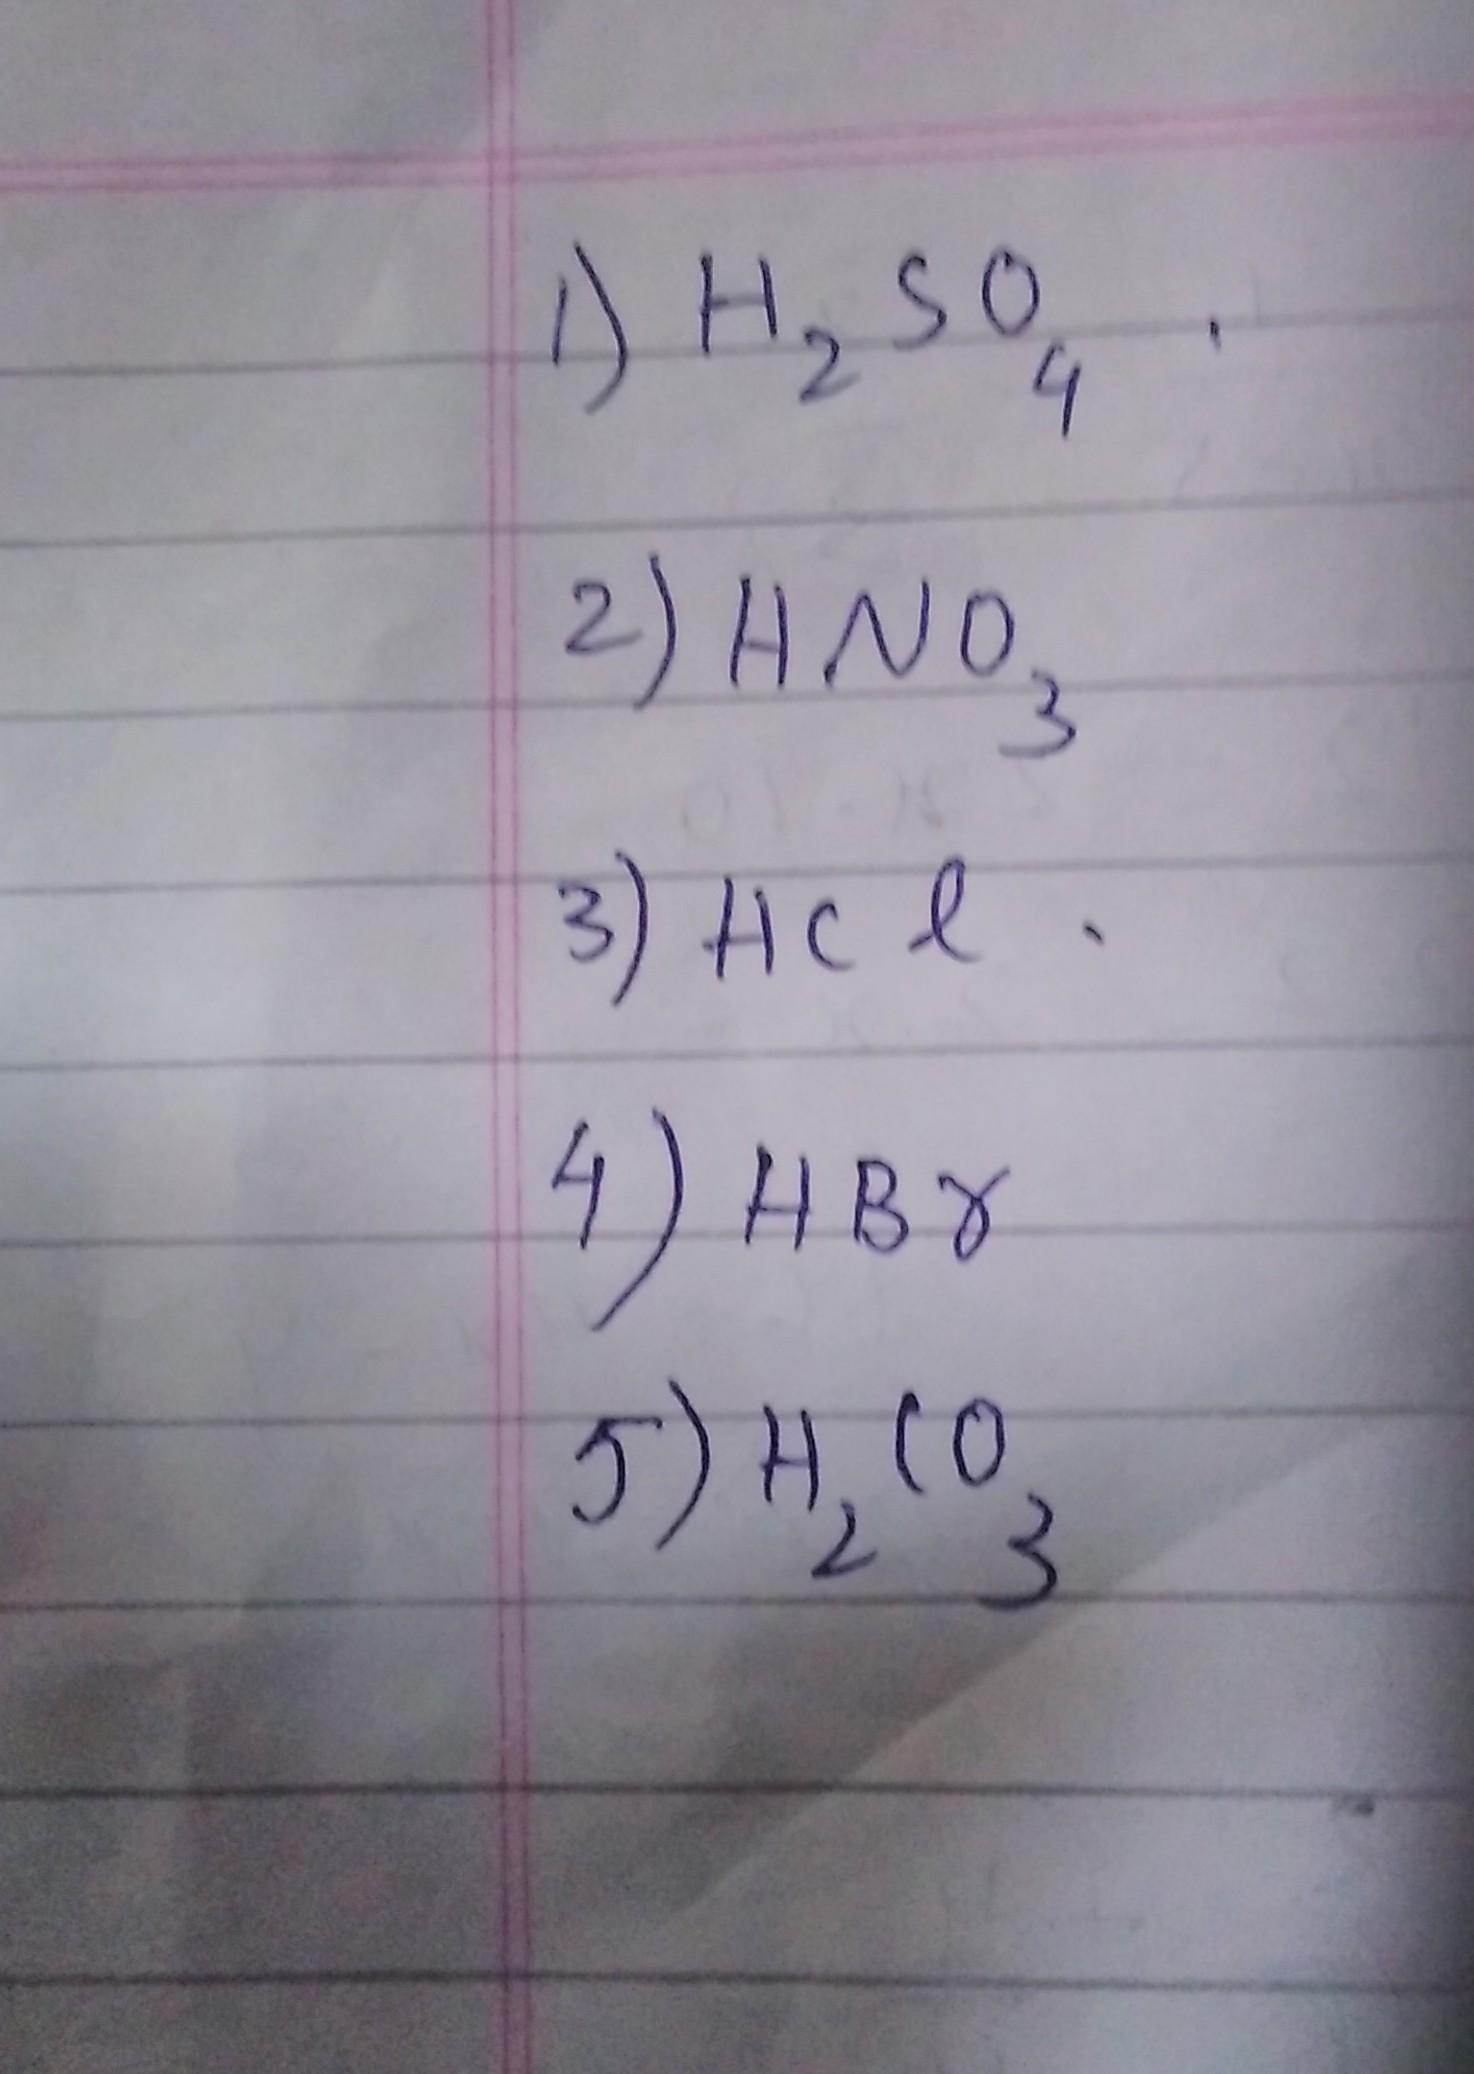 1) H₂SO₄.
2) HNO₃
3) HCl.
4) HBr
5) H₂CO₃